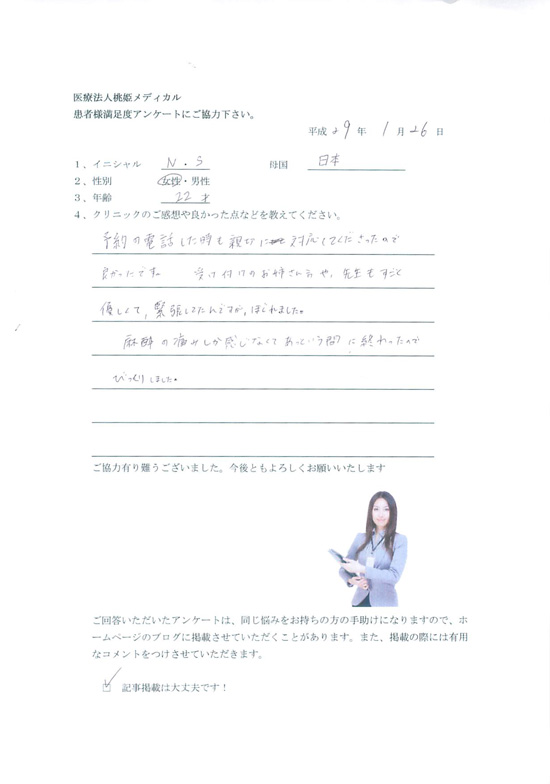 医療法人桃姫メディカル
患者様満足度アンケートにご協力下さい。
平成 29 年 1 月 26 日
1、イニシャル N・S 母国 日本
2、性別 女性・男性
3、年齢 22才
4、クリニックのご感想や良かった点などを教えてください。
予約の電話した時も親切に対応してくださったので
良かったですね 受け付けのお姉さんや、先生もすごく
優しくて、緊張してたんですが、ほぐれました。
麻酔の痛みしか感じなくてあっという間に終わったので
びっくりしました。
ご協力有り難うございました。今後ともよろしくお願いいたします
ご回答いただいたアンケートは、同じ悩みをお持ちの方の手助けになりますので、ホ
ームページのブログに掲載させていただくことがあります。また、掲載の際には有用
なコメントをつけさせていただきます。
☑ 記事掲載は大丈夫です！